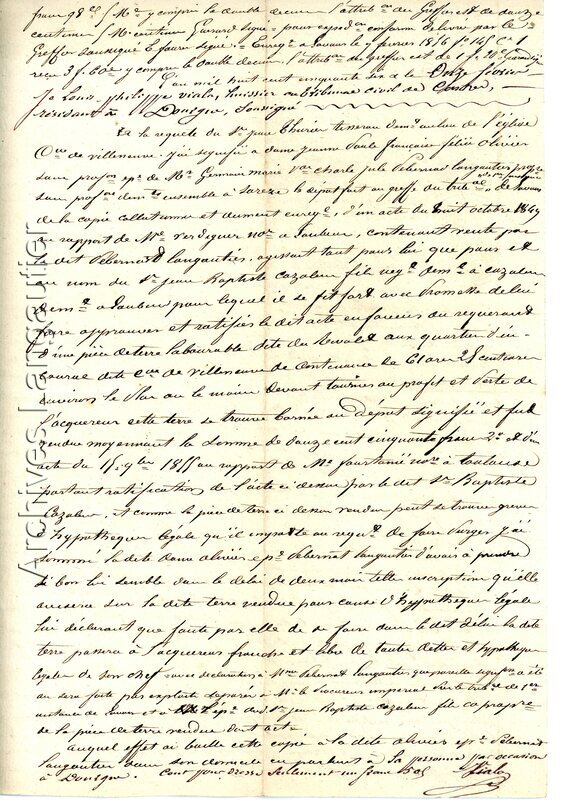 franc 98c
centimes
Greffier Sauseque Le faure signé. Enregé a Lavaur le 9 fevrier 1856 fo 145 Ce 1
reçu 3 f. 60c y compris le double decime l'attribon du greffier est de 1 f.
L'an mil huit cent cinquante six et le Douze fevrier
Je Louis philippe viala, huissier au tribunal civil de Castres,
résidant à Dourgne, soussigné
à la requete du Sr jean Thurier tisserand demt au lieu de l'église
Cne de villeneuve, j'ai signifié a dame jeanne Paule françoise félicie olivier
sans profon ep. de Mr Germain marie charle jule Pelbernad langautier
sans profon demts ensemble à Soreze le dépôt fait au greffe du tribal de Lavaur
de la copie collationnée et dument enregée, d'un acte du huit octobre 1849
au rapport de Me Verdeguer nore a Saubens, contenant vente par
le dit Pelbernad langautier, agissant tant pour lui que pour et
au nom du Sr jean Baptiste Cazaban fils negt demt à
demt a pour lequel il se fit fort avec Promesse de lui
faire approuver et ratifier le dit acte en faveur du requerant
d'une pièce de terre labourable dite du au quartier d'en
dite Cne de villeneuve de contenance de 25 centiares
environ le plus ou le moins devant tourner au profit et Perte de
l'acquereur cette terre se trouve bornée au dépôt signifié et fut
vendue moyennant la somme de douze cent cinquante francs 2o et d'un
acte du 15 9bre 1855 au rapport de Me nore à toulouse
portant ratification de l'acte ci dessus par le dit Sr Baptiste
Cazaban. Et comme la pièce de terre ci dessus vendue peut se trouver grevée
d'hypotheque légale qu'il importe au requt de faire Purger j'ai
sommé la dite dame olivier ep. Pelbernat langautier d'avoir à prendre
si bon lui semble dans le délai de deux mois telle inscription qu'elle
avisera sur la dite terre vendue pour cause d'hypotheque légale
lui déclarant que faute par elle de se faire dans le dit délai la dite
terre passera à l'acquereur franche et libre de toute dette et hypotheque
legale de son chef avec declaration à Mme Pelbernat langautier que pareille signifon a été
ou sera faite par exploit séparé à Mr le Procureur imperial Près le tribal de 1ere
instance de Lavaur et à l'ep. du dt Sr jean Baptiste cazaban fils co propre
de la pièce de terre vendue dont acte
auquel effet ai baillé cette copie à la dite olivier epe Pelbernat
langautier dans son domicile en parlant à sa personne par occasion
à Dourgne. Cout pour Droits Seulement un franc 50c Viala
Archives Langautier